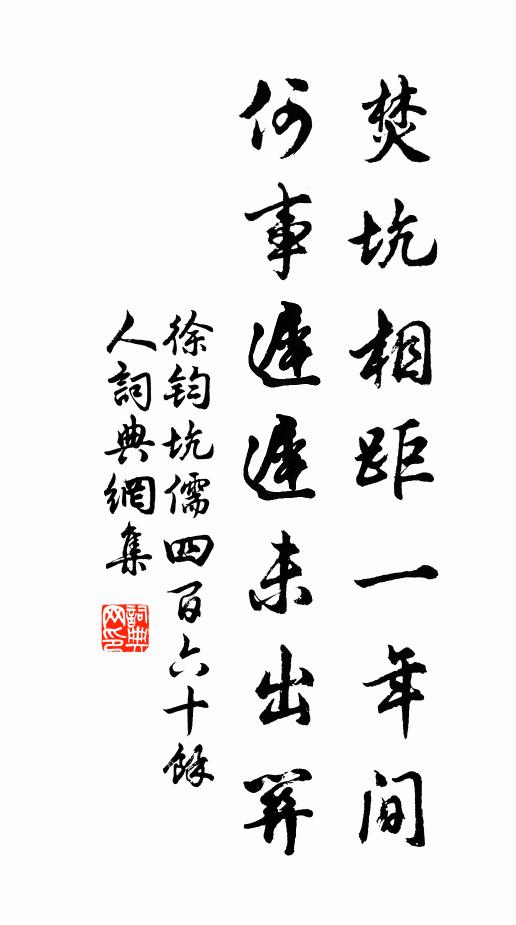 焚坑相距一年间
何事遲遲未出關
徐鈞坑儒四百六十餘
人詞典網集
詞典
网印